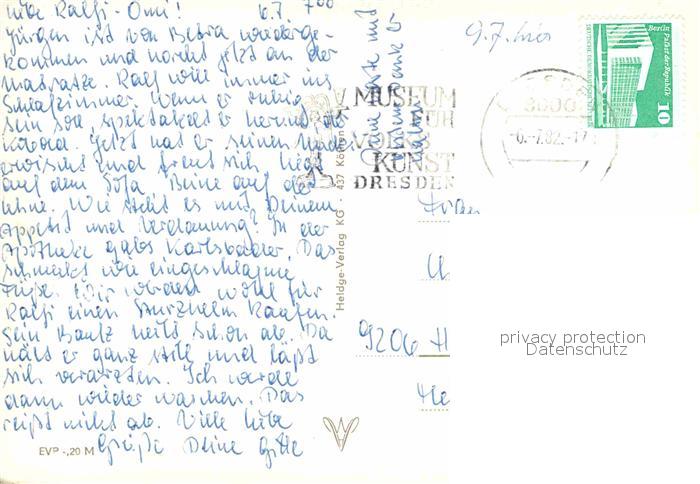 liebe Ralfi-Omi! 6.7. 7⁰⁰
Jürgen ist von Bebra wiederge-
kommen und horcht jetzt an der
Matratze. Ralf will immer ins
Schlafzimmer. Wenn er ruhig
sein soll, spektakelt er herum
Jetzt hat er seinen
erwischt und freut sich, liegt
auf dem Sofa Beine auf der
Lehne. Wie steht es mit Deinem
Appetit und Verdauung? In der
Apotheke gabs Karlsbader. Das
schmeckt wie eingeschlafne
Füße. Wir werden wohl für
Ralfi einen Sturzhelm kaufen.
Sein Bautz heilt schon ab. Da
hält er ganz still und läßt
sich verarzten. Ich werde
dann wieder waschen. Das
reißt nicht ab. Viele liebe
Grüße Deine Gitte
EVP -,20 M
Heldge-Verlag KG · 437 Köthen
9.7. hier
MUSEUM
FÜR
VOLKS
KUNST
DRESDEN
8000
-6.-7.82.-17
Berlin Palast der Republik
DEUTSCHE DEMOKRATISCHE
10
Frau
9206 H
privacy protection
Datenschutz